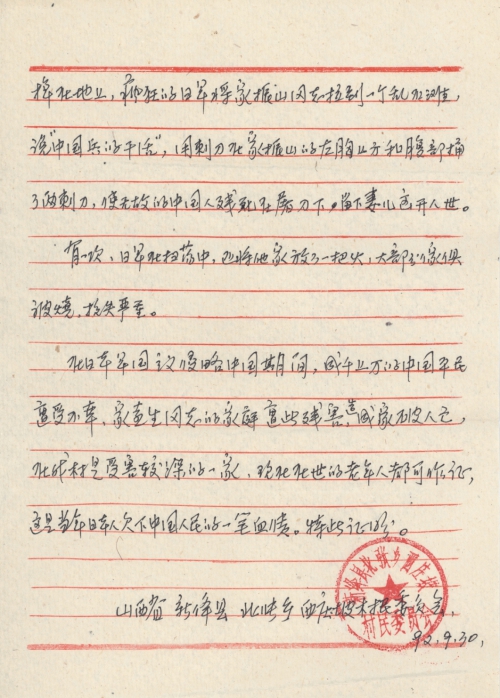 摔在地上，疯狂的日军将家振山同志拉到一个乱石滩，
说"中国兵的干活"，用刺刀在家振山的左胸上方和腹部捅
了两刺刀，使无故的中国人残死在屠刀下。留下妻儿离开人世。
有一次，日军在扫荡中，还将他家放了一把火，大部分家俱
被烧，损失严重。
在日本军国主义侵略中国期间，成千上万的中国平民
遭受不幸，家连生同志的家庭遭此残害，造成家破人亡，
在我村是受害较深的一家，现在在世的老年人都可作证，
这是当年日本人欠下中国人民的一笔血债。特此证明。
山西省新绛县北张乡西庄坡村民委员会
村民委员会
92.9.30,